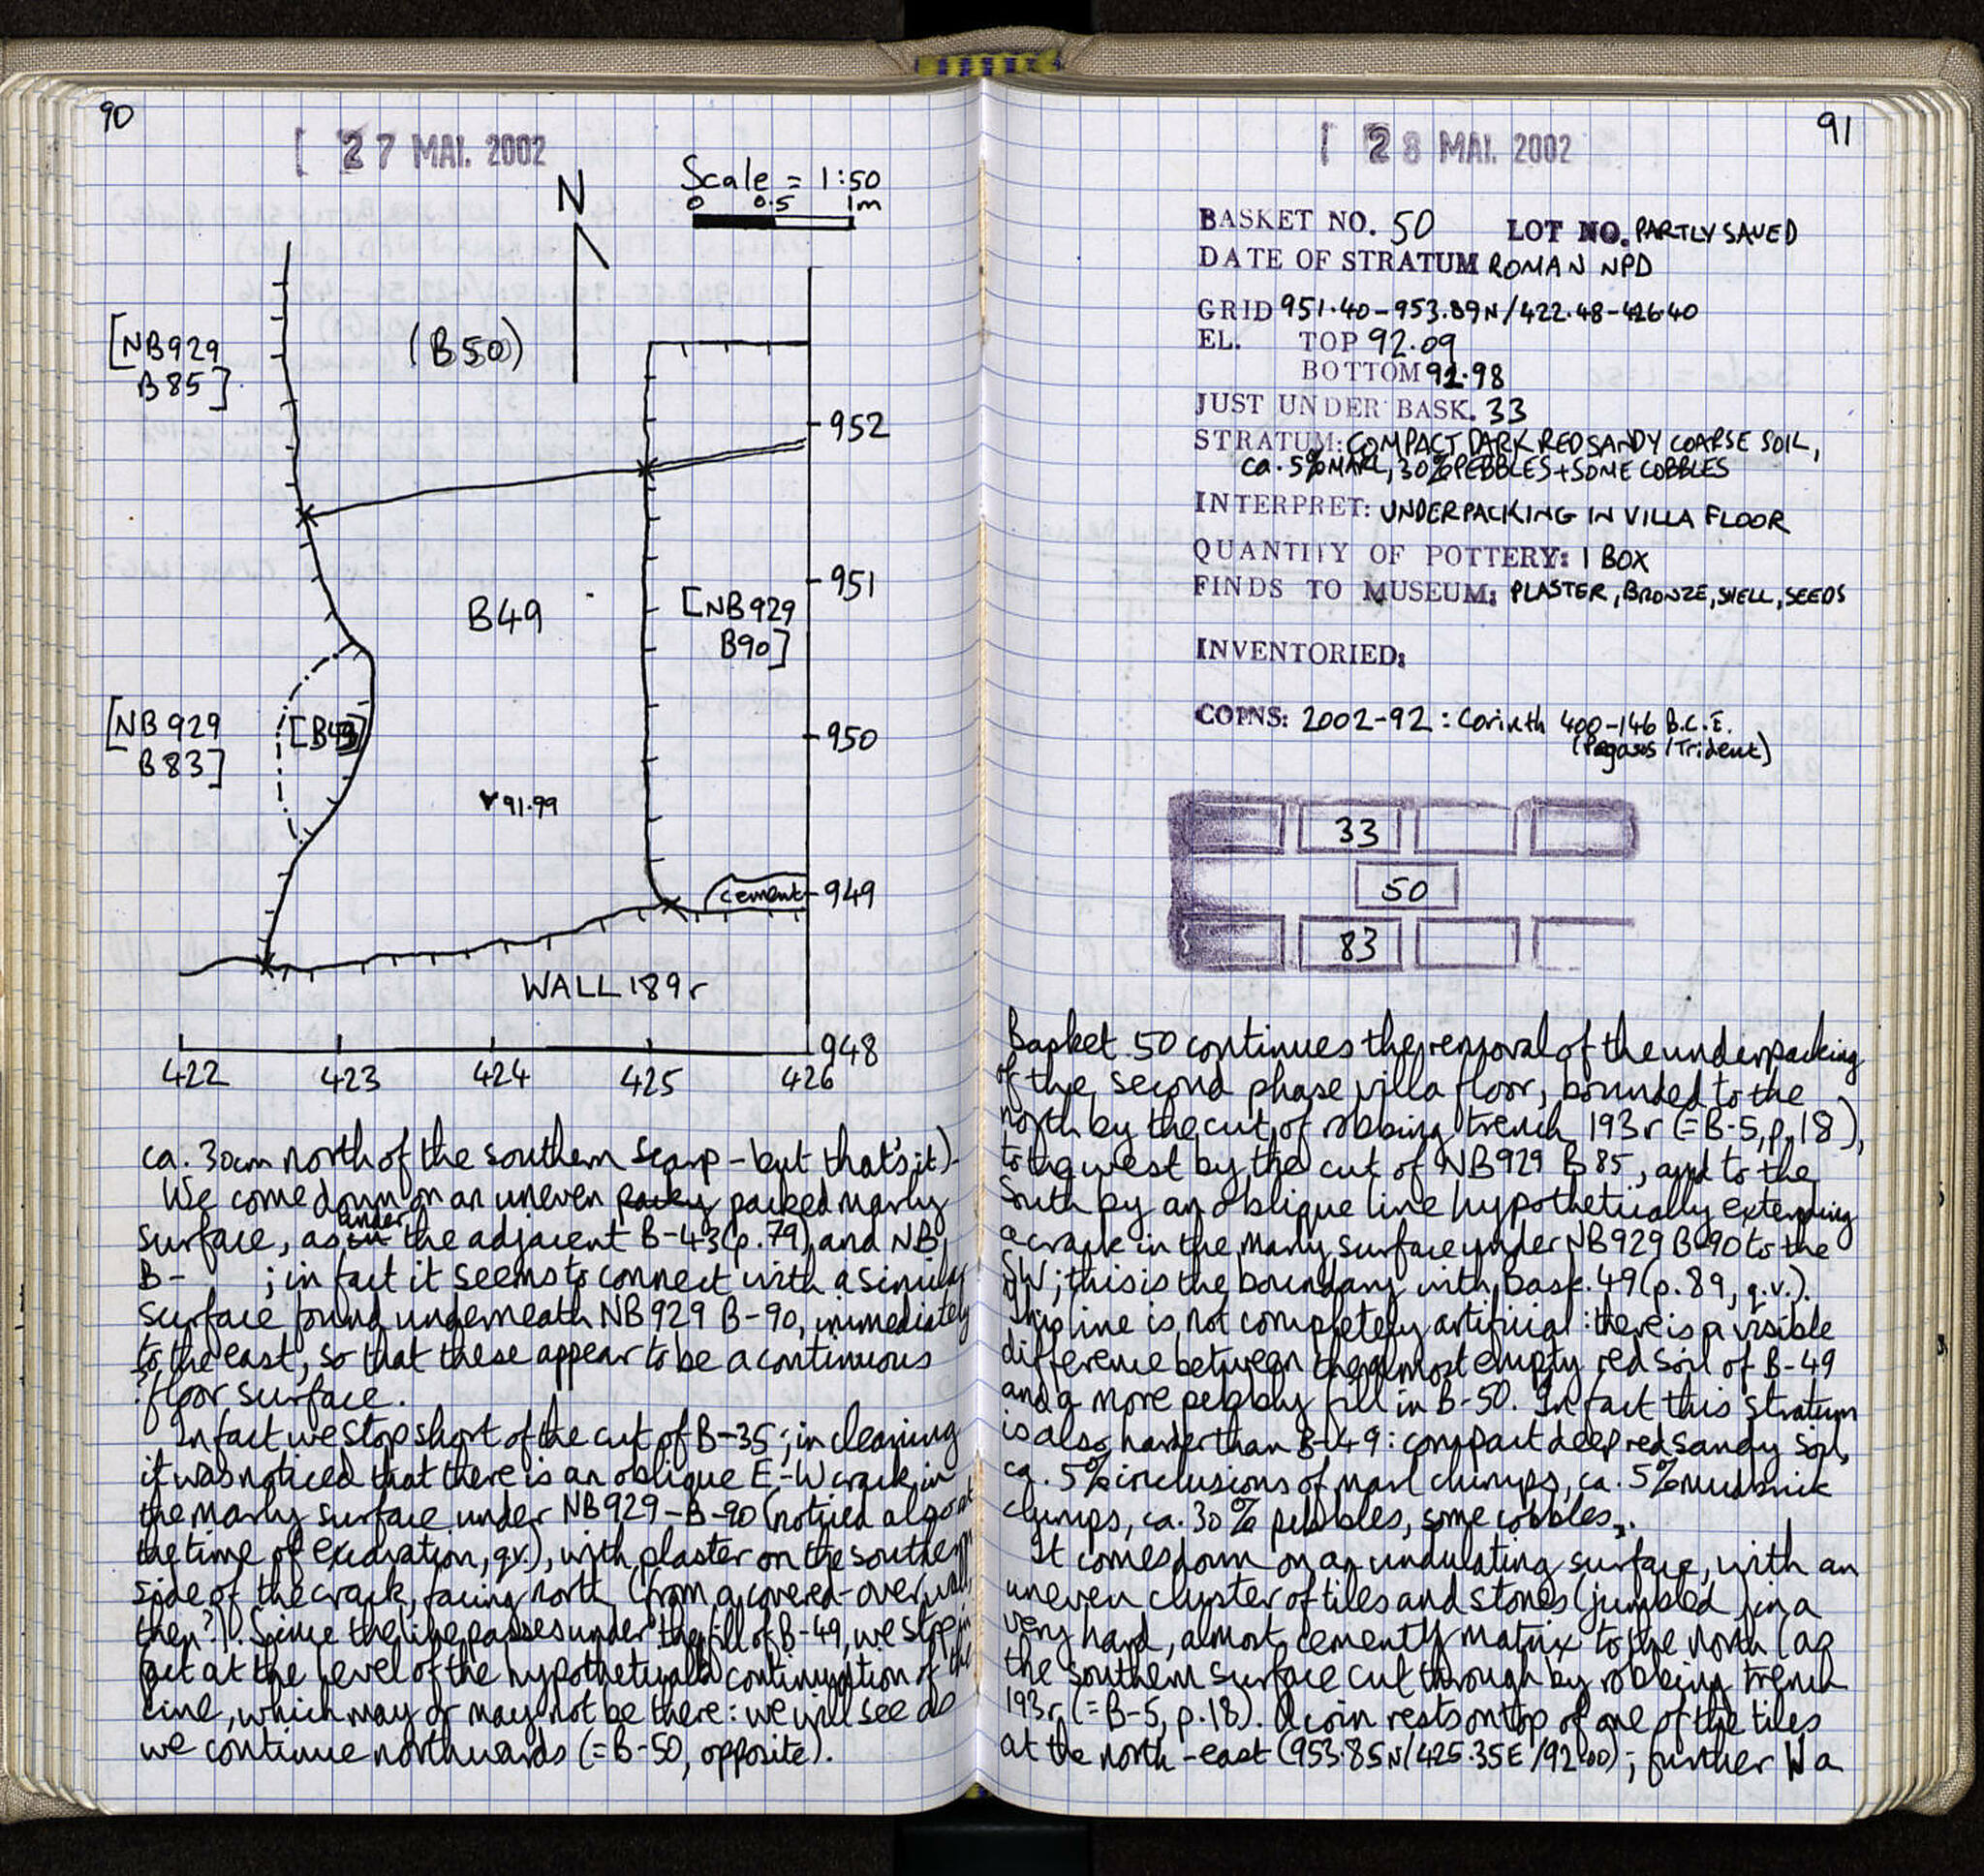 90
27 MAI. 2002
N
Scale = 1:50
0 0.5 1m
[NB929
B85]
(B50)
952
951
B49
[NB929
B90]
[NB929
B83]
[B43]
950
91.99
cement
949
WALL 189r
948
422 423 424 425 426
ca. 30cm north of the southern scarp - but that's it).
We come down on an uneven packed marly
surface, as under the adjacent B-43 (p.79), and NB
B-     ; in fact it seems to connect with a similar
surface found underneath NB929 B-90, immediately
to the east, so that these appear to be a continuous
?floor surface.
In fact we stop short of the cut of B-35; in cleaning
it was noticed that there is an oblique E-W crack in
the marly surface under NB929-B-90 (noticed also at
the time of excavation, q.v.), with plaster on the southern
side of the crack, facing north (from a covered-over wall,
then?). Since the line passes under the fill of B-49, we stop in
fact at the level of the hypothetical continuation of the
line, which may or may not be there: we will see as
we continue northwards (=B-50, opposite).
91
28 MAI. 2002
BASKET NO. 50 LOT NO. PARTLY SAVED
DATE OF STRATUM ROMAN NPD
GRID 951.40-953.89N/422.48-426.40
EL. TOP 92.09
BOTTOM 91.98
JUST UNDER BASK. 33
STRATUM: COMPACT DARK RED SANDY COARSE SOIL,
ca. 5% MARL, 30% PEBBLES + SOME COBBLES
INTERPRET: UNDERPACKING IN VILLA FLOOR
QUANTITY OF POTTERY: 1 BOX
FINDS TO MUSEUM: PLASTER, BRONZE, SHELL, SEEDS
INVENTORIED:
COINS: 2002-92 : Corinth 400-146 B.C.E.
(Pegasus/Trident)
33
50
83
Basket 50 continues the removal of the underpacking
of the second phase villa floor, bounded to the
north by the cut of robbing trench 193r (=B-5, p.18),
to the west by the cut of NB929 B85, and to the
south by an oblique line hypothetically extending
a crack in the marly surface under NB929 B-90 to the
SW; this is the boundary with Bask. 49 (p.89, q.v.).
This line is not completely artificial: there is a visible
difference between the almost empty red soil of B-49
and a more pebbly fill in B-50. In fact this stratum
is also harder than B-49: compact deep red sandy soil,
ca. 5% inclusions of marl clumps, ca. 5% mudbrick
clumps, ca. 30% pebbles, some cobbles.
It comes down on an undulating surface, with an
uneven cluster of tiles and stones (jumbled) in a
very hard, almost cementy matrix to the north (as
the southern surface cut through by robbing trench
193r (=B-5, p.18). A coin rests on top of one of the tiles
at the north-east (953.85N/425.35E/92.00); further W a